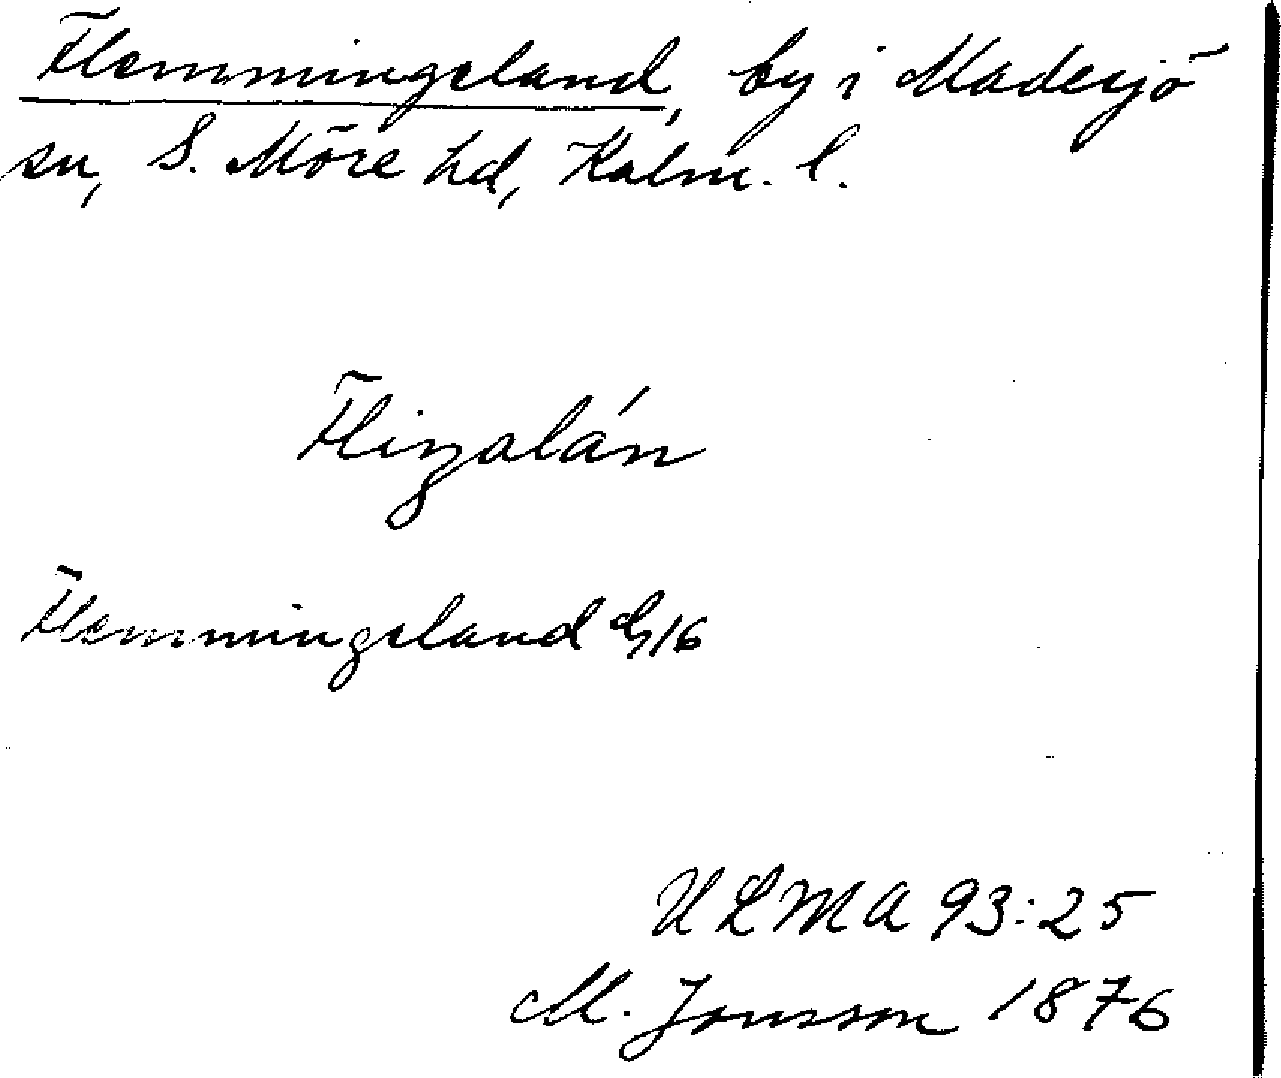 Flemmingeland, by i Madesjö
sn, S. Möre hd, Kalm. l.
Flizalán
Flemmingeland G16
ULMA 93:25
M. Jonsson 1876